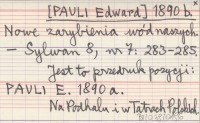 [PAULI Edward] 1890 b.
Nowe zarybienia wód naszych.
- Sylwan 8, nr 7: 283-285.
Jest to przedruk pozycji:
PAULI E. 1890 a.
Na Podhalu i w Tatrach Polskich.